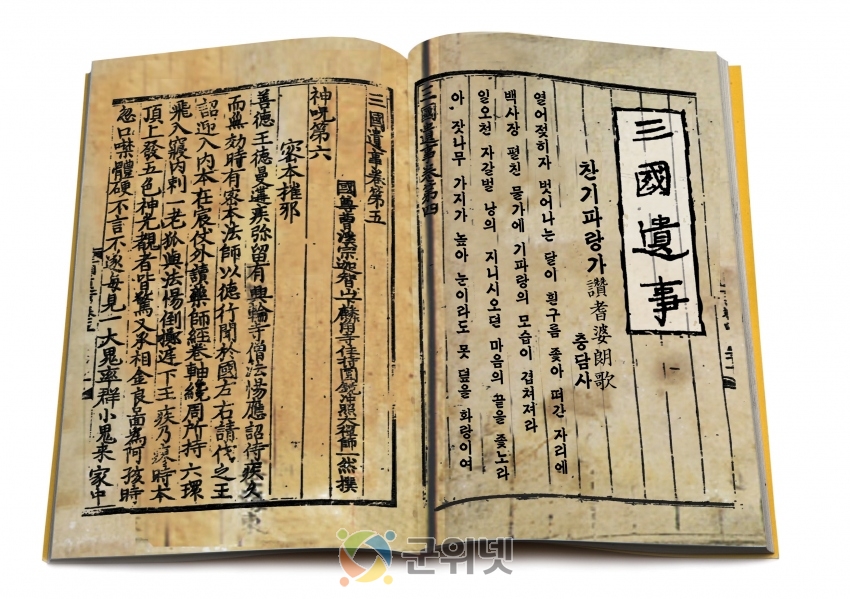 三國遺事
찬기파랑가 讚耆婆朗歌
충담사
열어젖히자 벗어나는 달이 흰구름 좇아 떠간 자리에
백사장 펼친 물가에 기파랑의 모습이 겹쳐져라
일오천 자갈벌 낭의 지니시오던 마음의 끝을 좇노라
아 잣나무 가지가 높아 눈이라도 못 덮을 화랑이여
三國遺事卷第四
三國遺事卷第五
國尊曹溪宗迦智山下麟角寺住持圓鏡冲照大禪師一然撰
神呪第六
密本摧邪
善德王德曼遘疾弥留有興輪寺僧法惕應詔侍疾久
而無効時有密本法師以德行聞於國左右請代之王
詔迎入內本在宸仗外讀藥師經卷軸纔周所持六環
飛入寢內刺一老狐與法惕倒擲庭下王疾乃瘳時本
頂上發五色神光覩者皆驚又承相金良圖為阿孩時
忽口噤體硬不言不遂每見一大鬼率群小鬼来家中
군위넷